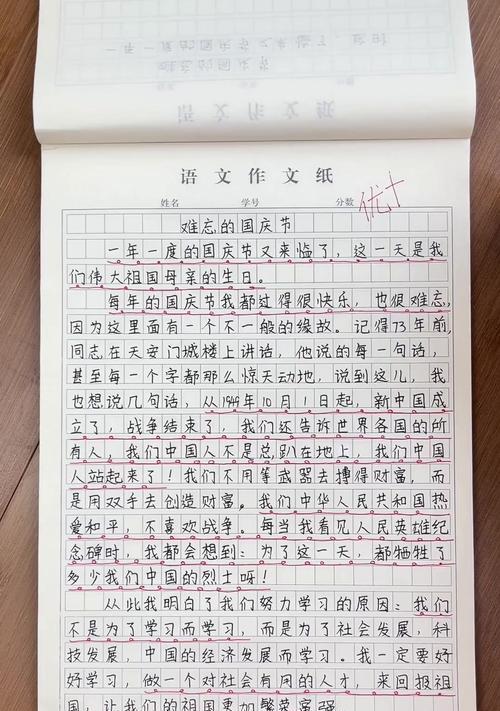 语文作文纸
姓名 学号 分数 优+
难忘的国庆节
一年一度的国庆节又来临了，这一天是我
们伟大祖国母亲的生日。
每年的国庆节我都过得很快乐，也很难忘，
因为这里面有一个不一般的缘故。记得73年前，
同志在天安门城楼上讲话，他说的每一句话，
甚至每一个字都那么惊天动地，说到这儿，我
也想说几句话，从1949年10月1日起，新中国成
立了，战争结束了，我们还告诉世界各国的所
有人，我们中国人不是总趴在地上，我们中国
人站起来了！我们不用等武器去搏得财富，而
是用双手去创造财富。我们中华人民共和国热
爱和平，不喜欢战争。每当我看见人民英雄纪
念碑时，我都会想到：为了这一天，都牺牲了
多少我们中国的烈士呀！
从此我明白了我们努力学习的原因：我们
不是为了学习而学习，而是为了社会发展，科
技发展，中国的经济发展而学习。我一定要好
好学习，做一个对社会有用的人才，来回报祖
国，让我们的祖国更加繁荣富强